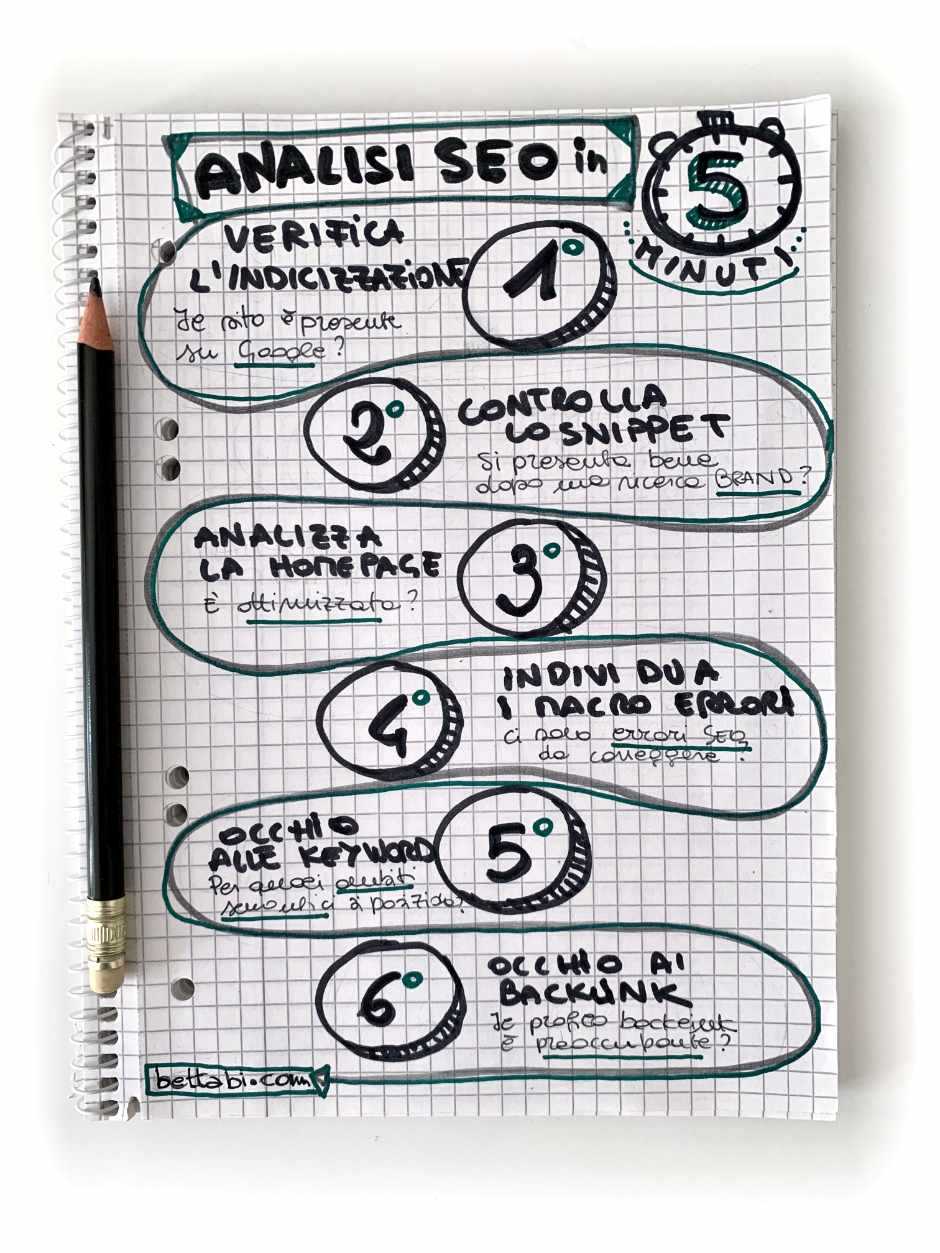 ANALISI SEO in
5
MINUTI
VERIFICA
L'INDICIZZAZIONE
1°
Il sito è presente
su Google?
2°
CONTROLLA
LO SNIPPET
Si presenta bene
dopo una ricerca BRAND?
ANALIZZA
LA HOMEPAGE
3°
È ottimizzata?
4°
INDIVIDUA
I MACRO ERRORI
ci sono errori SEO
da correggere?
OCCHIO
ALLE KEYWORD
5°
Per quali ambiti
semantici si posiziona?
6°
OCCHIO AI
BACKLINK
Il profilo backlink
è preoccupante?
bettabi.com